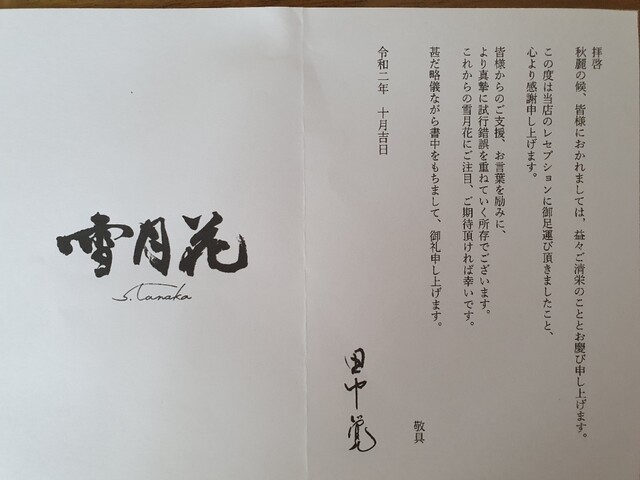 拝啓
秋麗の候、皆様におかれましては、益々ご清栄のこととお慶び申し上げます。
この度は当店のレセプションに御足運び頂きましたこと、
心より感謝申し上げます。
皆様からのご支援、お言葉を励みに、
より真摯に試行錯誤を重ねていく所存でございます。
これからの雪月花にご注目、ご期待頂ければ幸いです。
甚だ略儀ながら書中をもちまして、御礼申し上げます。
敬具
令和二年　十月吉日
田中覚
雪月花
S.Tanaka